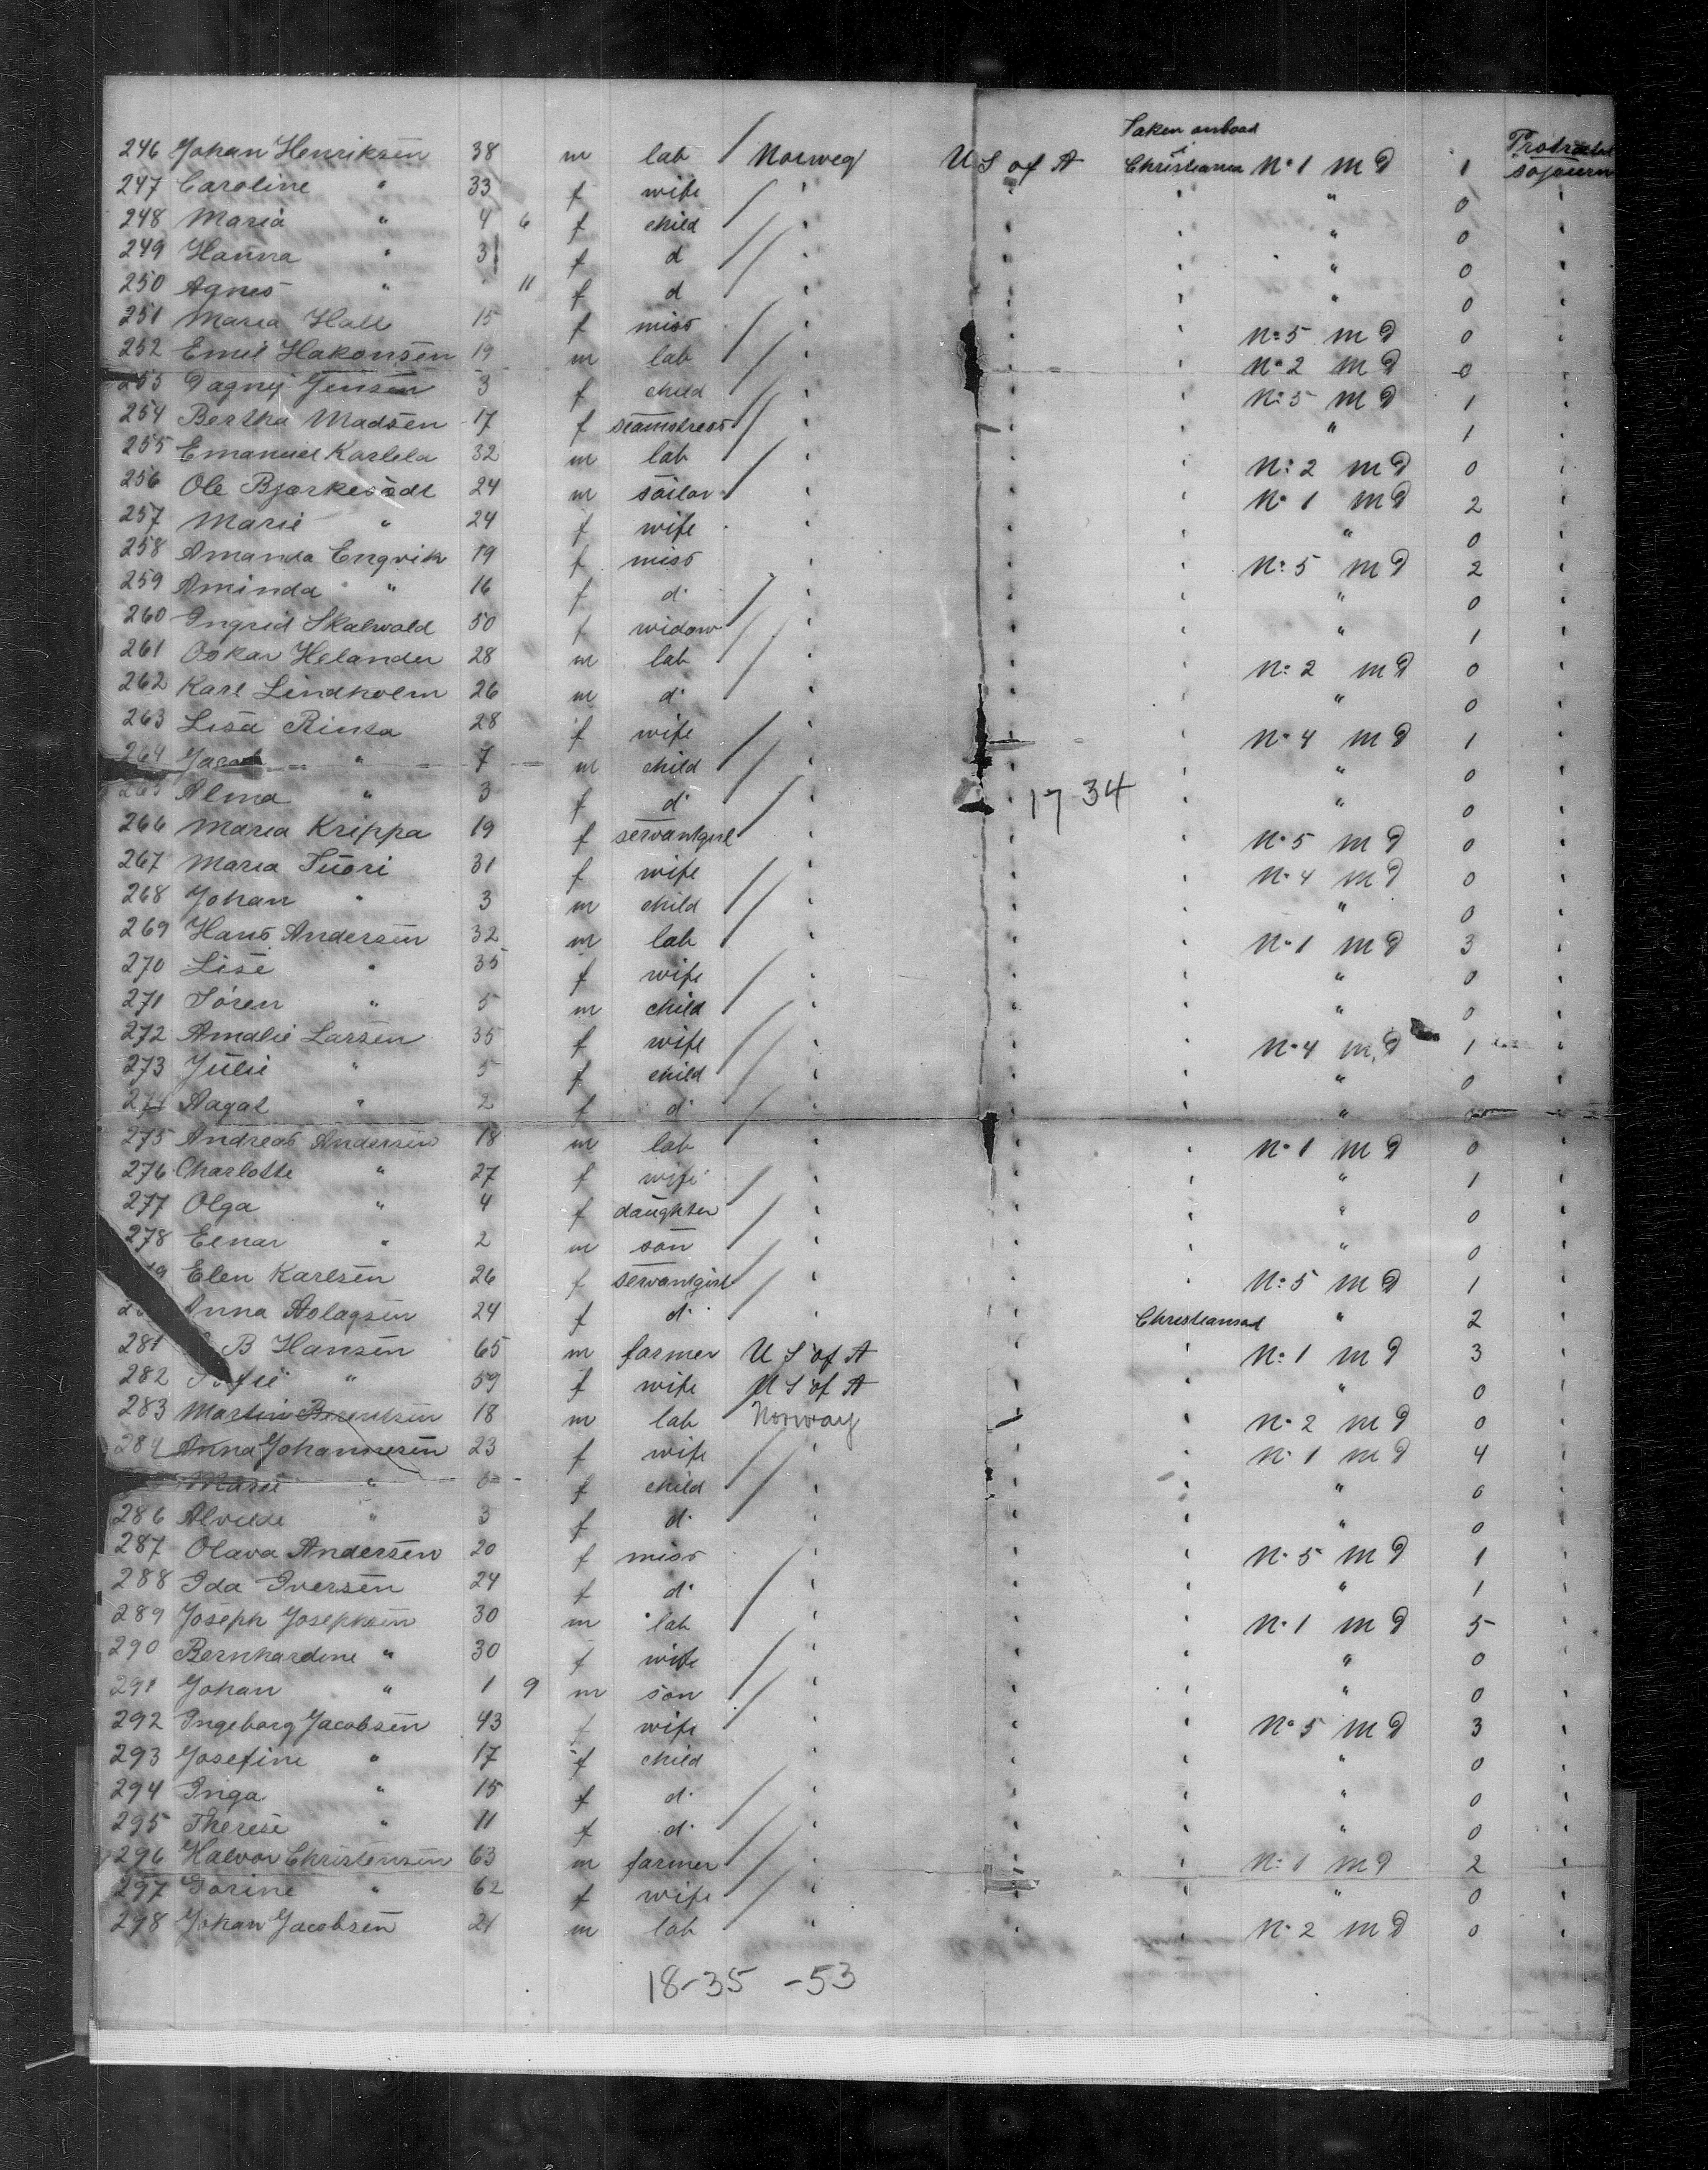 Taken onboad
246 Johan Henriksen 38 m lab / Norweg U S of A Christiania No 1 m D 1 Protracted sojourn
247 Caroline " 33 f wife / " " " " 0 "
248 Maria " 4 6 f child / " " " " 0 "
249 Hanna " 3 f d / " " " " 0 "
250 Agnes " 11 f d / " " " " 0 "
251 Maria Hall 15 f miss / " " " No 5 m D 0 "
252 Emil Hakonsen 19 m lab / " " " No 2 m D 0 "
253 Dagny Jensen 3 f child / " " " No 5 m D 1 "
254 Bertha Madsen 17 f seamstress / " " " " 1 "
255 Emanuel Karlela 32 m lab / " " " No 2 m D 0 "
256 Ole 24 m sailor / " " " No 1 m D 2 "
257 Marie " 24 f wife " " " " 0 "
258 Amanda Engvik 19 f miss " " " No 5 m D 2 "
259 Aminda " 16 f do / " " " " 0 "
260 Ingrid Skalwold 50 f widow / " " " " 1 "
261 Oskar Helander 28 m lab / " " " No 2 m D 0 "
262 Karl Lindholm 26 m do / " " " " 0 "
263 Lisa Rinta 28 f wife / " " " No 4 m D 1 "
264 Jacob " 7 m child / " " " " 0 "
265 Alma " 3 f do / " " 17 34 " " 0 "
266 Maria Krippa 19 f servantgirl / " " " No 5 m D 0 "
267 Maria Suori 31 f wife / " " " No 4 m D 0 "
268 Johan " 3 m child / " " " " 0 "
269 Hans Andersen 32 m lab / " " " No 1 m D 3 "
270 Lise " 35 f wife / " " " " 0 "
271 Sören " 5 m child / " " " " 0 "
272 Amalie Larsen 35 f wife / " " " No 4 m D 1 "
273 Julie " 5 f child / " " " " 0 "
274 Aagot " 2 f do / " " " " 0 "
275 Andreas Andersen 18 m lab / " " " No 1 m D 0 "
276 Charlotte " 27 f wife / " " " " 1 "
277 Olga " 4 f daughter / " " " " 0 "
278 Einar " 2 m son / " " " " 0 "
Elen Karlsen 26 f servantgirl / " " " No 5 m D 1 "
Anna Aslagsen 24 f do / " " Christiansad " 2 "
281 B Hansen 65 m farmer U S of A " " No 1 m D 3 "
282 " 59 f wife U S of A " " " 0 "
283 Martin Berentsen 18 m lab Norway " No 2 m D 0 "
284 Anna Johannesen 23 f wife / " " " No 1 m D 4 "
Marie " f child / " " " " 0 "
286 Alvilde " 3 f do / " " " " 0 "
287 Olava Andersen 20 f miss / " " " No 5 m D 1 "
288 Ida Iversen 24 f do / " " " " 1 "
289 Joseph Josephsen 30 m lab / " " " No 1 m D 5 "
290 Bernhardine " 30 f wife / " " " " 0 "
291 Johan " 1 9 m son / " " " " 0 "
292 Ingeborg Jacobsen 43 f wife / " " " No 5 m D 3 "
293 Josefine " 17 f child " " " " 0 "
294 Inga " 15 f do / " " " " 0 "
295 Therese " 11 f do / " " " " 0 "
296 Halvor Christensen 63 m farmer / " " " No 1 m D 2 "
297 Torine " 62 f wife / " " " " 0 "
298 Johan Jacobsen 21 m lab / " " " No 2 m D 0 "
18-35 -53